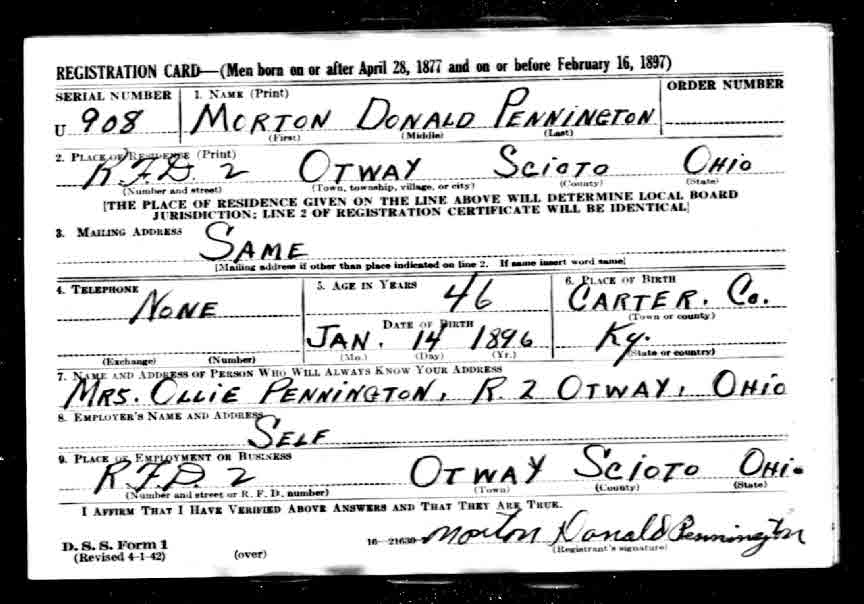 REGISTRATION CARD—(Men born on or after April 28, 1877 and on or before February 16, 1897)
SERIAL NUMBER 1. NAME (Print) ORDER NUMBER
U 908 MORTON DONALD PENNINGTON
(First) (Middle) (Last)
2. PLACE OF RESIDENCE (Print)
R.F.D. 2 OTWAY SCIOTO OHIO
(Number and street) (Town, township, village, or city) (County) (State)
[THE PLACE OF RESIDENCE GIVEN ON THE LINE ABOVE WILL DETERMINE LOCAL BOARD
JURISDICTION; LINE 2 OF REGISTRATION CERTIFICATE WILL BE IDENTICAL]
3. MAILING ADDRESS
SAME
[Mailing address if other than place indicated on line 2. If same insert word same]
4. TELEPHONE 5. AGE IN YEARS 6. PLACE OF BIRTH
NONE 46 CARTER. Co.
DATE OF BIRTH (Town or county)
JAN. 14 1896 Ky.
(Exchange) (Number) (Mo.) (Day) (Yr.) (State or country)
7. NAME AND ADDRESS OF PERSON WHO WILL ALWAYS KNOW YOUR ADDRESS
MRS. OLLIE PENNINGTON, R. 2 OTWAY, OHIO
8. EMPLOYER'S NAME AND ADDRESS
SELF
9. PLACE OF EMPLOYMENT OR BUSINESS
R.F.D. 2 OTWAY SCIOTO OHIO
(Number and street or R. F. D. number) (Town) (County) (State)
I AFFIRM THAT I HAVE VERIFIED ABOVE ANSWERS AND THAT THEY ARE TRUE.
D. S. S. Form 1 16—21630 Morton Donald Pennington
(Revised 4-1-42) (over) (Registrant's signature)